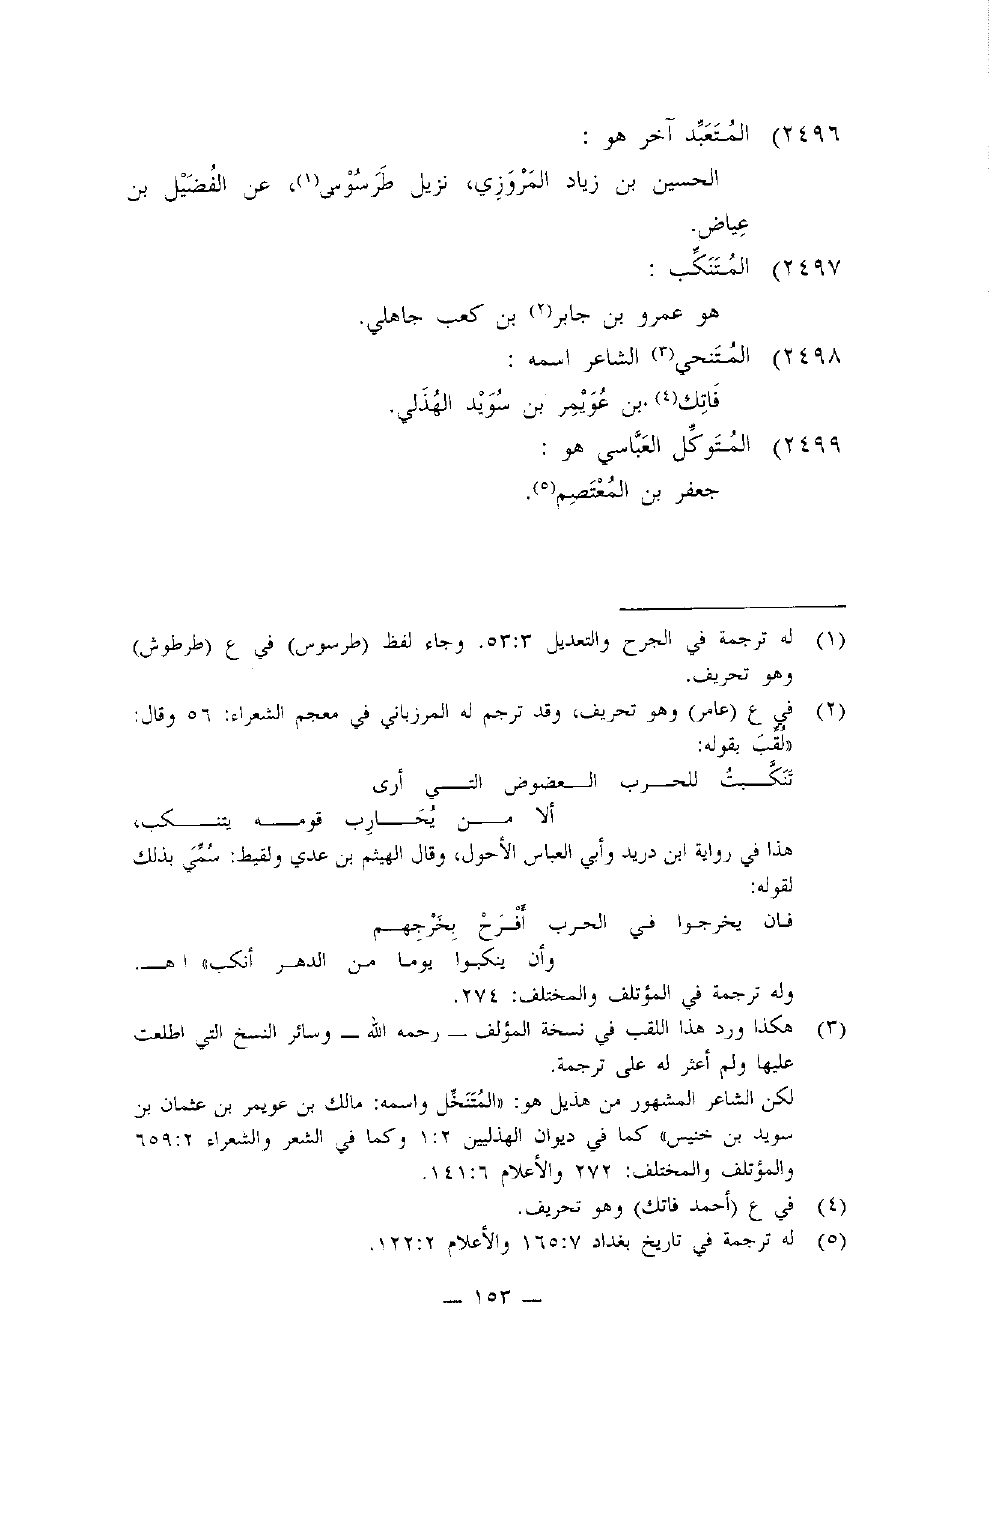 ٢٤٩٦) المُتَعَبِّد آخر هو :
الحسين بن زياد المَرْوَزِي، نزيل طَرَسُوْس(١)، عن الفُضَيْل بن
عِياض.
٢٤٩٧) المُتَنَكِّب :
هو عمرو بن جابر(٢) بن كعب جاهلي.
٢٤٩٨) المُتَنحي(٣) الشاعر اسمه :
فَاتِك(٤) بن عُوَيْمِر بن سُوَيْد الهُذَلي.
٢٤٩٩) المُتَوكِّل العَبَّاسي هو :
جعفر بن المُعْتَصِم(٥).
(١) له ترجمة في الجرح والتعديل ٥٣:٣. وجاء لفظ (طرسوس) في ع (طرطوش)
وهو تحريف.
(٢) في ع (عامر) وهو تحريف، وقد ترجم له المرزباني في معجم الشعراء: ٥٦ وقال:
«لُقِّبَ بقوله:
تَنَكَّبتُ للحرب العضوض التي أرى
ألا من يُحَارِب قومه يتنكب،
هذا في رواية ابن دريد وأبي العباس الأحول، وقال الهيثم بن عدي ولقيط: سُمِّيَ بذلك
لقوله:
فان يخرجوا في الحرب أَفْرَحْ بِخَرْجِهم
وأن ينكبوا يوما من الدهر أنكب» اهـ.
وله ترجمة في المؤتلف والمختلف: ٢٧٤.
(٣) هكذا ورد هذا اللقب في نسخة المؤلف ــ رحمه الله ــ وسائر النسخ التي اطلعت
عليها ولم أعثر له على ترجمة.
لكن الشاعر المشهور من هذيل هو: «المُتَنَخِّل واسمه: مالك بن عويمر بن عثمان بن
سويد بن خنيس» كما في ديوان الهذليين ١:٢ وكما في الشعر والشعراء ٦٥٩:٢
والمؤتلف والمختلف: ٢٧٢ والأعلام ١٤١:٦.
(٤) في ع (أحمد فاتك) وهو تحريف.
(٥) له ترجمة في تاريخ بغداد ١٦٥:٧ والأعلام ١٢٢:٢.
ــ ١٥٣ ــ